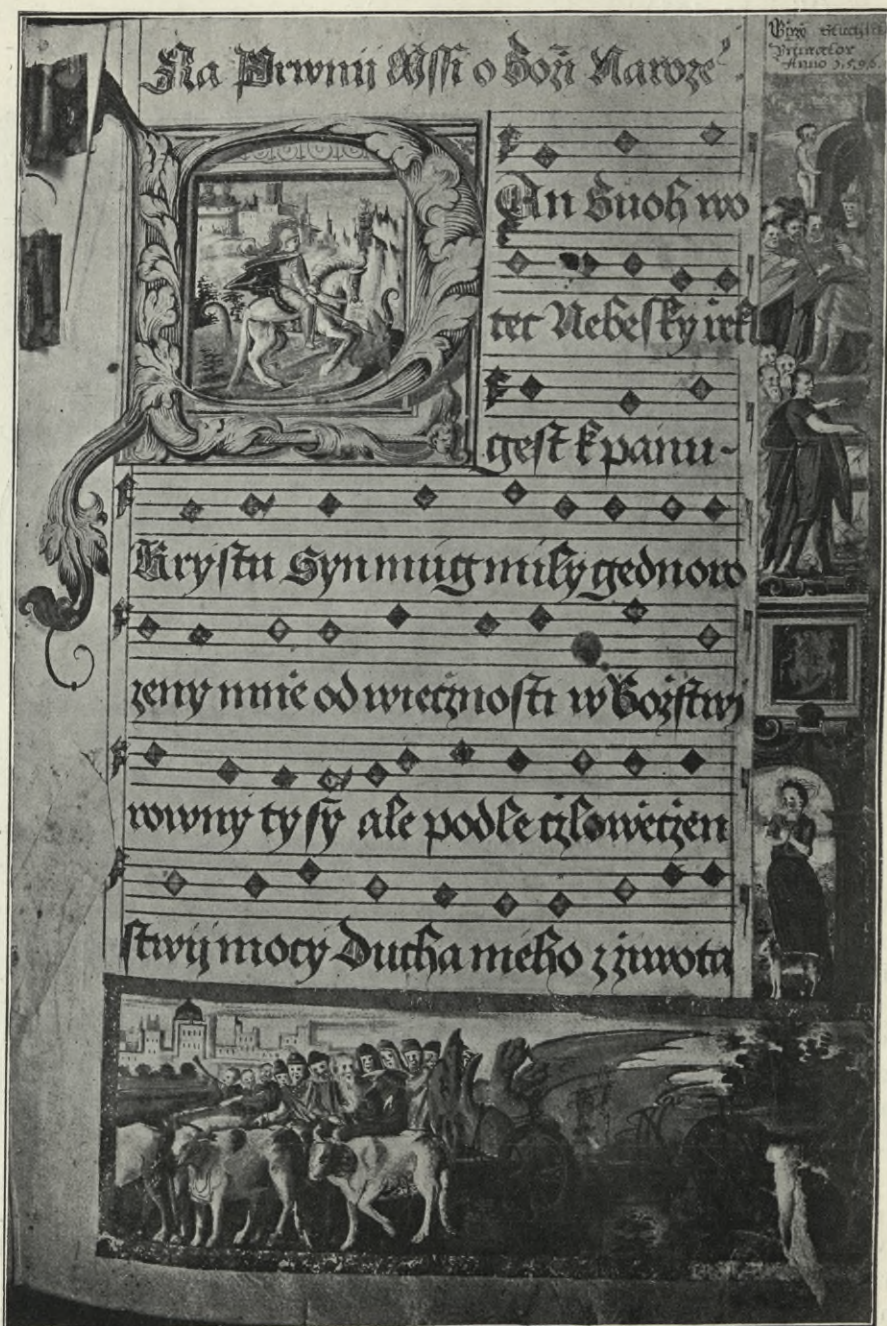 Na Prwnij Mssi o Boži Naroze
Anno 1.5.9.6.
PAn Buoh wo
tec Nebesky rekl
gest k panu-
Krystu Syn mug mily gednow
zeny mnie od wiecznosti w Bozstwj
rowny ty sy ale podle czlowieczen
stwij mocy Ducha meho z ziwota